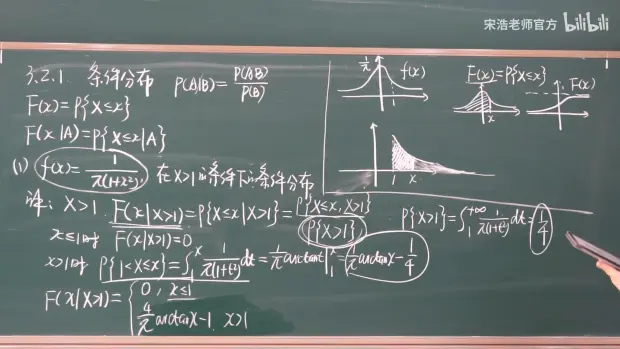 宋浩老师官方 bilibili
3.2.1 条件分布 P(A|B)=P(AB)/P(B)
F(x)=P{X≤x}
F(x|A)=P{X≤x|A}
(1) f(x)=1/π(1+x²), 在X>1的条件下的条件分布
解: X>1. F(x|X>1)=P{X≤x|X>1}=P{X≤x,X>1}/P{X>1},
P{X>1}=∫₁^{+∞} 1/π(1+t²) dt=1/4
x≤1时 F(x|X>1)=0
x>1时 P{1<X≤x}=∫₁^x 1/π(1+t²) dt=1/π arctant|₁^x=1/π arctanx-1/4
F(x|X>1)={0, x≤1
4/π arctanx-1, x>1
1/π f(x)
1
F(x)=P{X≤x}
x
F(x)
1 x